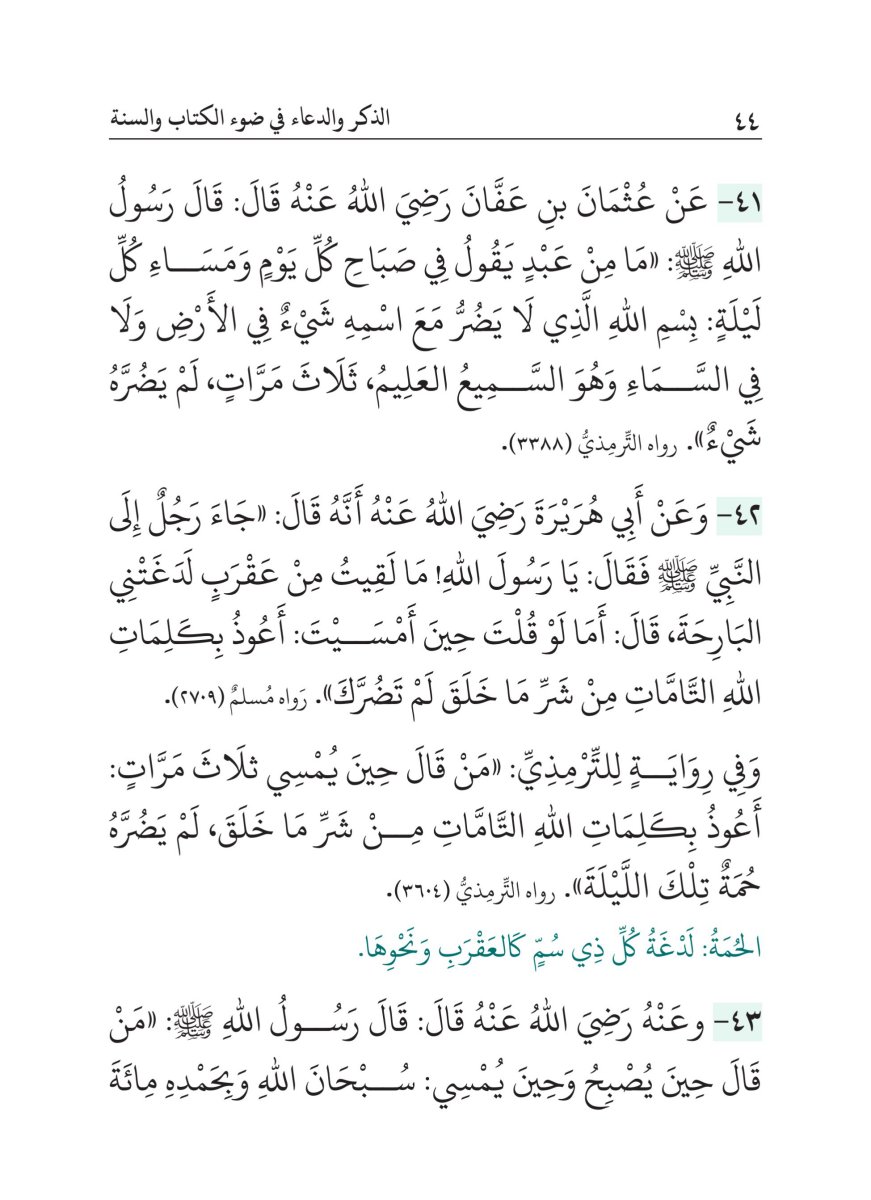 ٤٤ الذكر والدعاء في ضوء الكتاب والسنة
٤١- عَنْ عُثْمَانَ بنِ عَفَّانَ رَضِيَ اللهُ عَنْهُ قَالَ: قَالَ رَسُولُ
اللهِ ﷺ: «مَا مِنْ عَبْدٍ يَقُولُ فِي صَبَاحِ كُلِّ يَوْمٍ وَمَسَاءِ كُلِّ
لَيْلَةٍ: بِسْمِ اللهِ الَّذِي لَا يَضُرُّ مَعَ اسْمِهِ شَيْءٌ فِي الأَرْضِ وَلَا
فِي السَّمَاءِ وَهُوَ السَّمِيعُ العَلِيمُ، ثَلَاثَ مَرَّاتٍ، لَمْ يَضُرَّهُ
شَيْءٌ». رواه التِّرمِذيُّ (٣٣٨٨).
٤٢- وَعَنْ أَبِي هُرَيْرَةَ رَضِيَ اللهُ عَنْهُ أَنَّهُ قَالَ: «جَاءَ رَجُلٌ إِلَى
النَّبِيِّ ﷺ فَقَالَ: يَا رَسُولَ اللهِ! مَا لَقِيتُ مِنْ عَقْرَبٍ لَدَغَتْنِي
البَارِحَةَ، قَالَ: أَمَا لَوْ قُلْتَ حِينَ أَمْسَيْتَ: أَعُوذُ بِكَلِمَاتِ
اللهِ التَّامَّاتِ مِنْ شَرِّ مَا خَلَقَ لَمْ تَضُرَّكَ». رَواه مُسلمٌ (٢٧٠٩).
وَفِي رِوَايَةٍ لِلتِّرْمِذِيِّ: «مَنْ قَالَ حِينَ يُمْسِي ثلَاثَ مَرَّاتٍ:
أَعُوذُ بِكَلِمَاتِ اللهِ التَّامَّاتِ مِنْ شَرِّ مَا خَلَقَ، لَمْ يَضُرَّهُ
حُمَةٌ تِلْكَ اللَّيْلَةَ». رواه التِّرمِذيُّ (٣٦٠٤).
الحُمَةُ: لَدْغَةُ كُلِّ ذِي سُمٍّ كَالعَقْرَبِ وَنَحْوِهَا.
٤٣- وعَنْهُ رَضِيَ اللهُ عَنْهُ قَالَ: قَالَ رَسُولُ اللهِ ﷺ: «مَنْ
قَالَ حِينَ يُصْبِحُ وَحِينَ يُمْسِي: سُبْحَانَ اللهِ وَبِحَمْدِهِ مِائَةَ